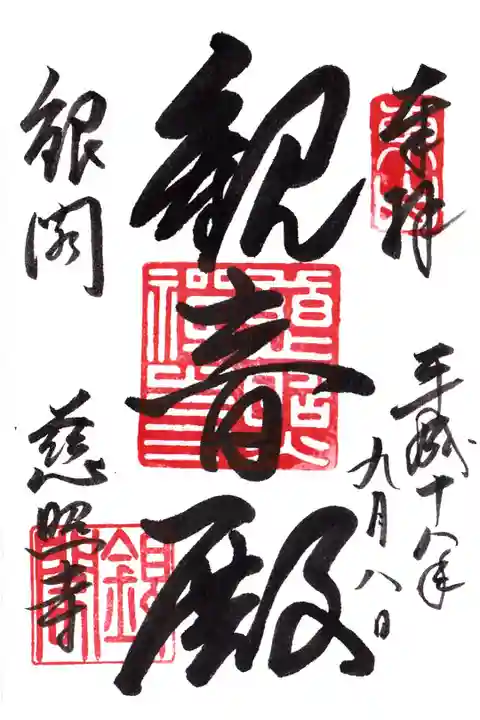 奉拝
平成十八年
九月八日
観音殿
銀閣
慈照寺